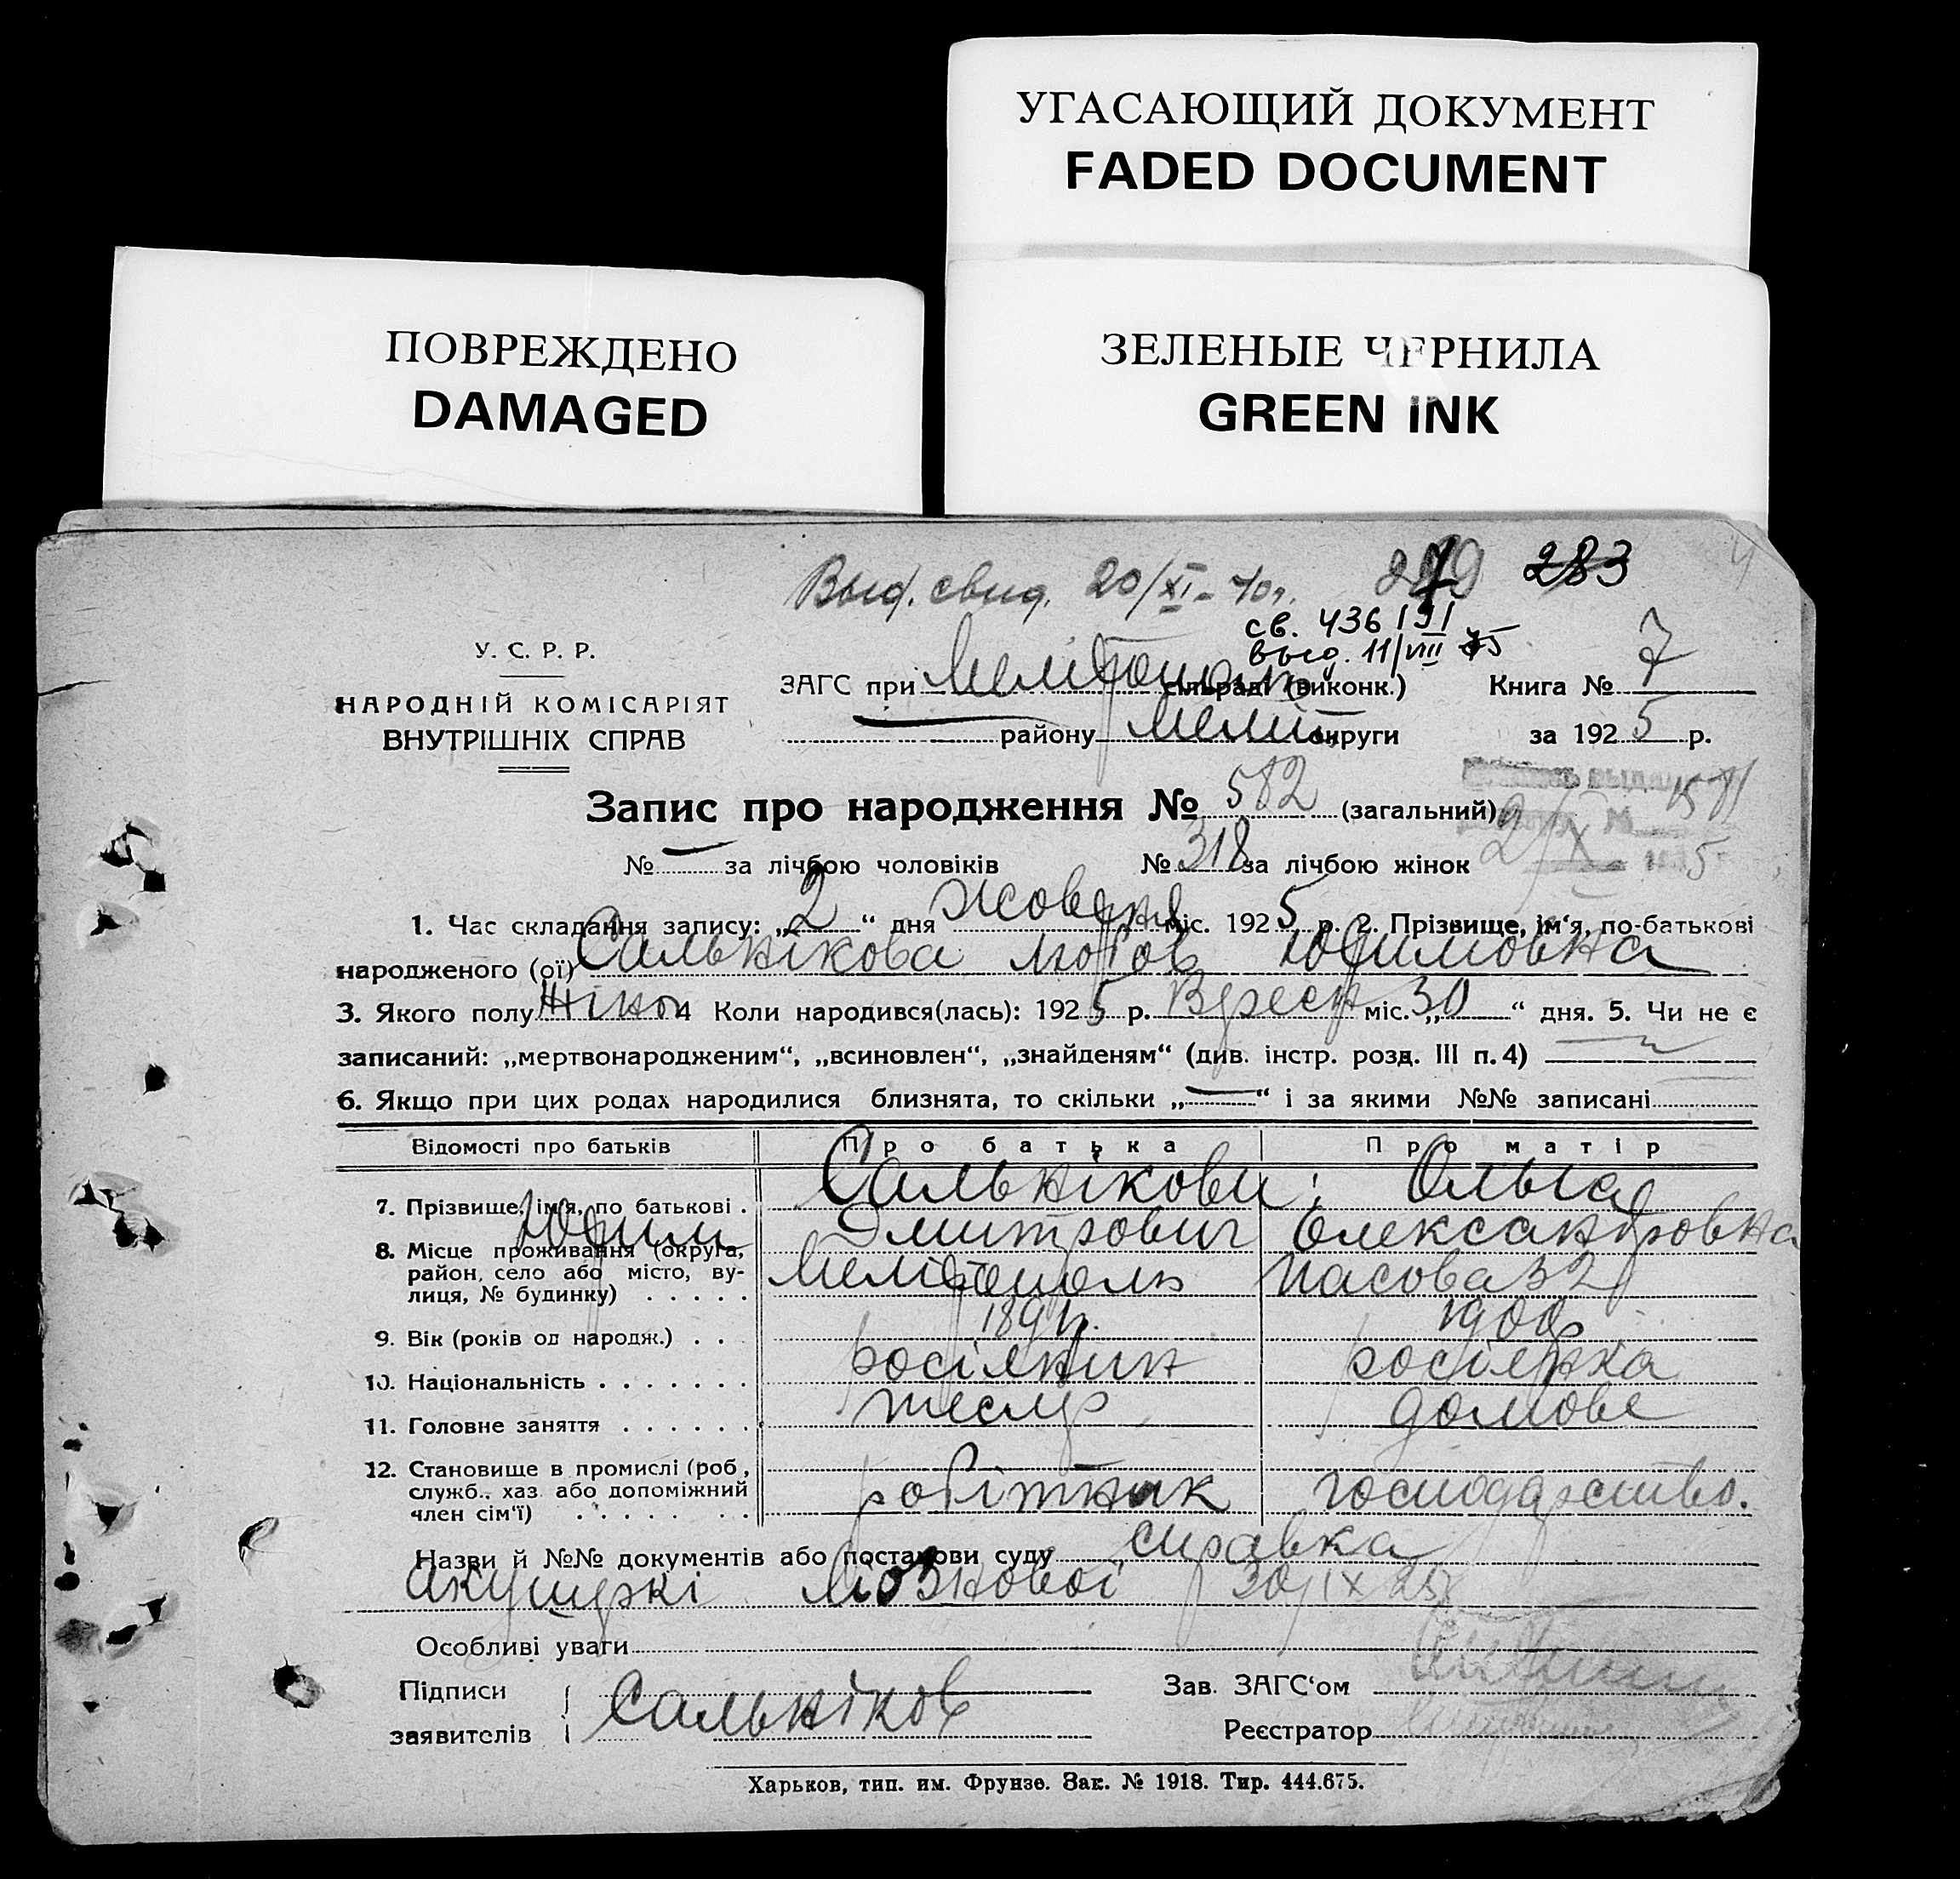 УГАСАЮЩИЙ ДОКУМЕНТ
FADED DOCUMENT
ПОВРЕЖДЕНО
DAMAGED
ЗЕЛЕНЫЕ ЧЕРНИЛА
GREEN INK
Выд. свид. 20/XI - 40 г. 283
св. 436191
выд. 11/VIII 75
У. С. Р. Р.
НАРОДНІЙ КОМІСАРІЯТ
ВНУТРІШНІХ СПРАВ
ЗАГС при сільраді (виконк.) Книга № 7
району Меліт. округи за 1925 р.
Запис про народження № 582 (загальний)
№ — за лічбою чоловіків № 318 за лічбою жінок
1. Час складання запису: „2“ дня Жовтня міс. 1925 р. 2. Прізвище, ім‘я, по-батькові
народженого (ої) Сальнікова Любов Юфимовна
3. Якого полу Жіноч 4 Коли народився(лась): 1925 р. Вересн міс. „30“ дня. 5. Чи не є
записаний: „мертвонародженим“, „всиновлен“, „знайденям“ (див. інстр. розд. III п. 4) —
6. Якщо при цих родах народилися близнята, то скільки „—“ і за якими №№ записані
Відомості про батьків Про батька Про матір
7. Прізвище, ім‘я, по батькові . Сальнікови: Ольга
Юфим Дмитрович Олександровна
8. Місце проживання (округа,
район, село або місто, ву-
лиця, № будинку) . . . . . Мелітополь 32
9. Вік (років од народж.) . . 1900р
10. Національність . . . . . . . росіянин росіянка
11. Головне заняття . . . . . . тесляр домове
12. Становище в промислі (роб.,
служб., хаз. або допоміжний
член сім‘ї) . . . . . . . . робітник господарство.
Назви й №№ документів або постанови суду справка
акушеркі Лозновоі 30/IX 25
Особливі уваги
Підписи
заявителів Сальніков
Зав. ЗАГС‘ом
Реєстратор
Харьков, тип. им. Фрунзе. Зак. № 1918. Тир. 444.675.